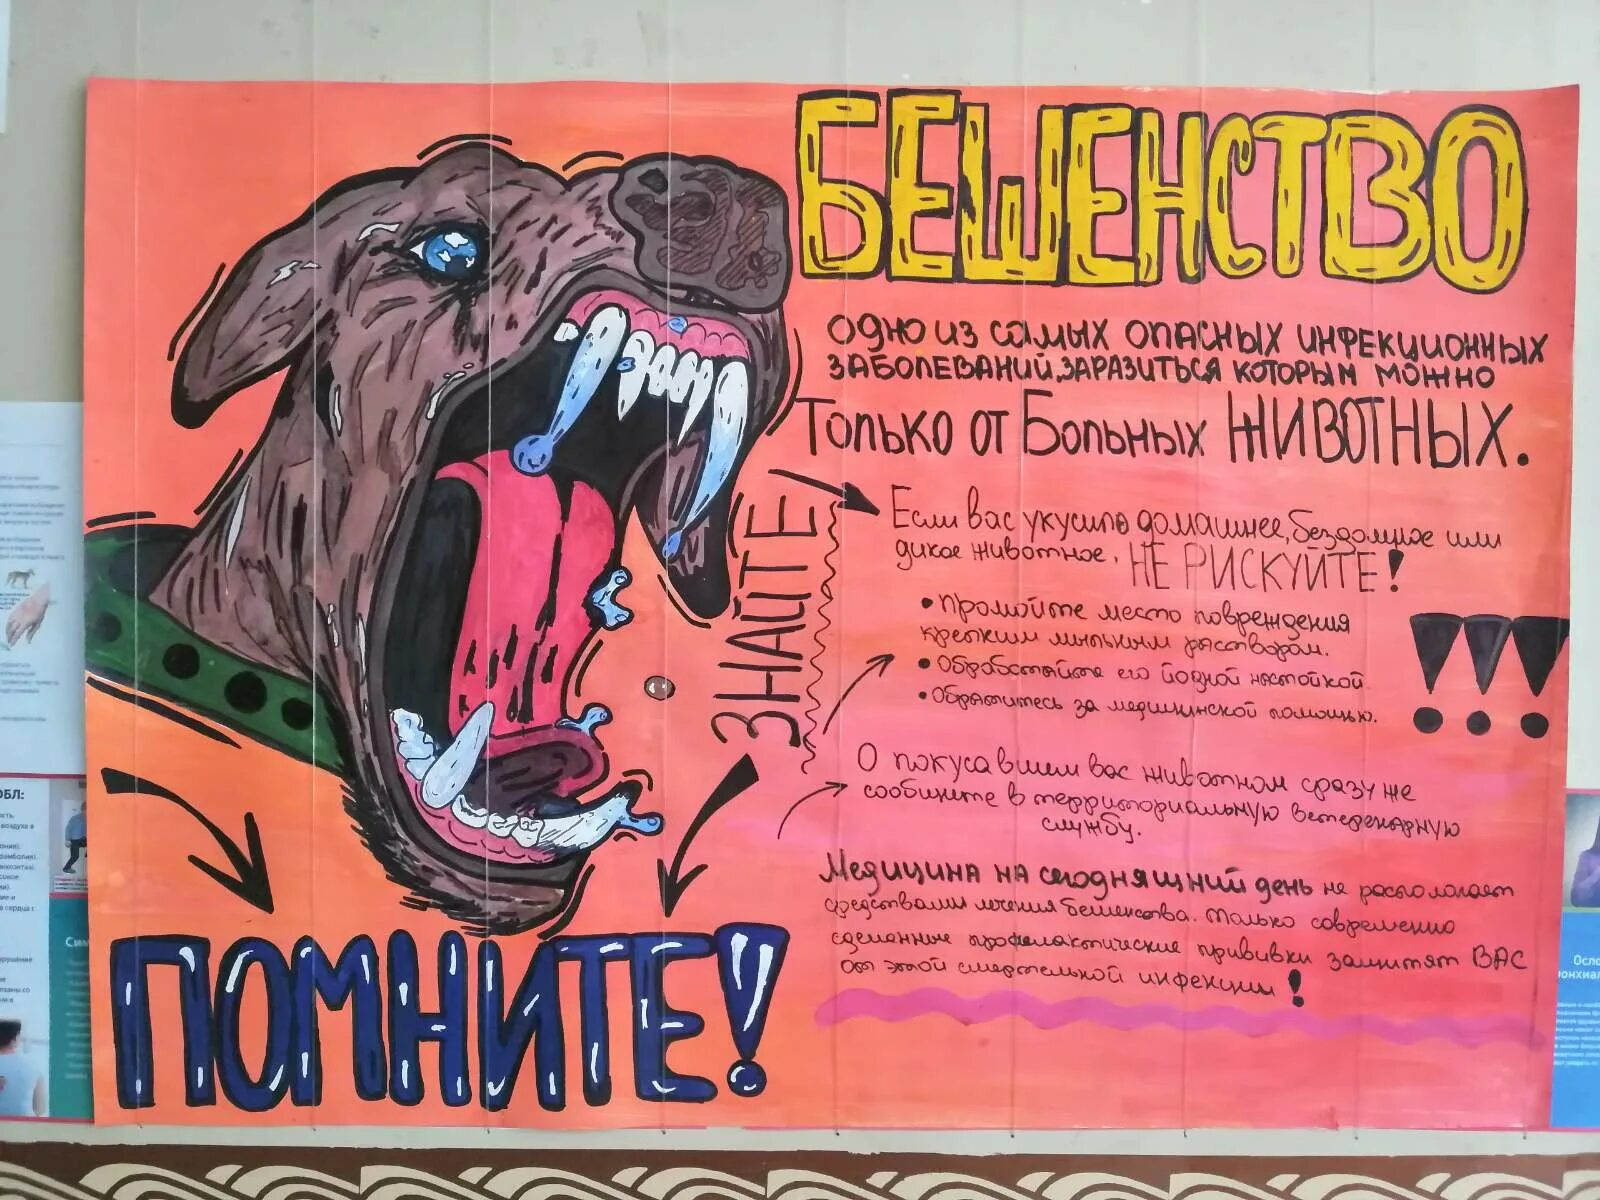 БЕШЕНСТВО
ОДНО ИЗ САМЫХ ОПАСНЫХ ИНФЕКЦИОННЫХ
ЗАБОЛЕВАНИЙ, ЗАРАЗИТЬСЯ КОТОРЫМ МОЖНО
ТОЛЬКО ОТ БОЛЬНЫХ ЖИВОТНЫХ.
ЗНАЙТЕ
Если вас укусило домашнее, бездомное или
дикое животное, НЕ РИСКУЙТЕ!
• Промойте место повреждения
крепким мыльным раствором.
• Обработайте его йодной настойкой.
• Обратитесь за медицинской помощью.
О покусавшем вас животном сразу же
сообщите в территориальную ветеринарную
службу.
Медицина на сегодняшний день не располагает
средствами лечения бешенства. только современно
сделанные профилактические прививки защитят ВАС
от этой смертельной инфекции!
ПОМНИТЕ!
ОБЛ:
Сим
Осло